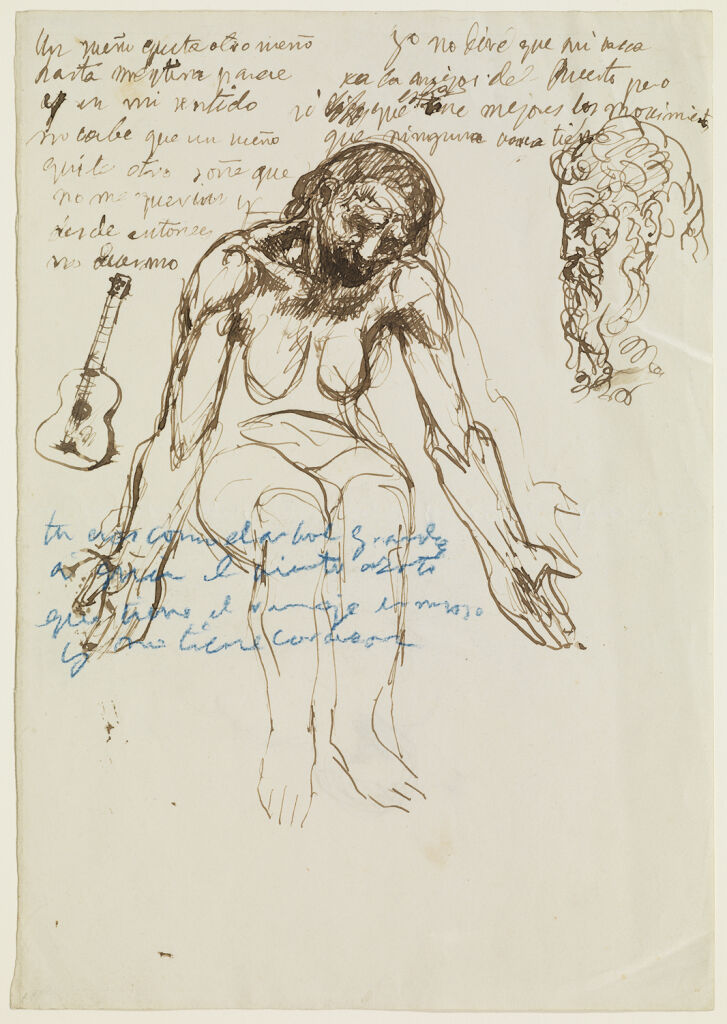 Un sueño quita otro sueño
hasta mentira parece
y en mi sentido
no cabe que un sueño
quite otro soñe que
no me querias y
desde entonces
no duermo
yo no diré que mi
sea la mejor del Puerto pero
si que tiene mejores los movimientos
que ninguna tiene
tu eres como el arbol grande
a quien el viento azota
que tiene el ramaje
y no tiene corazon